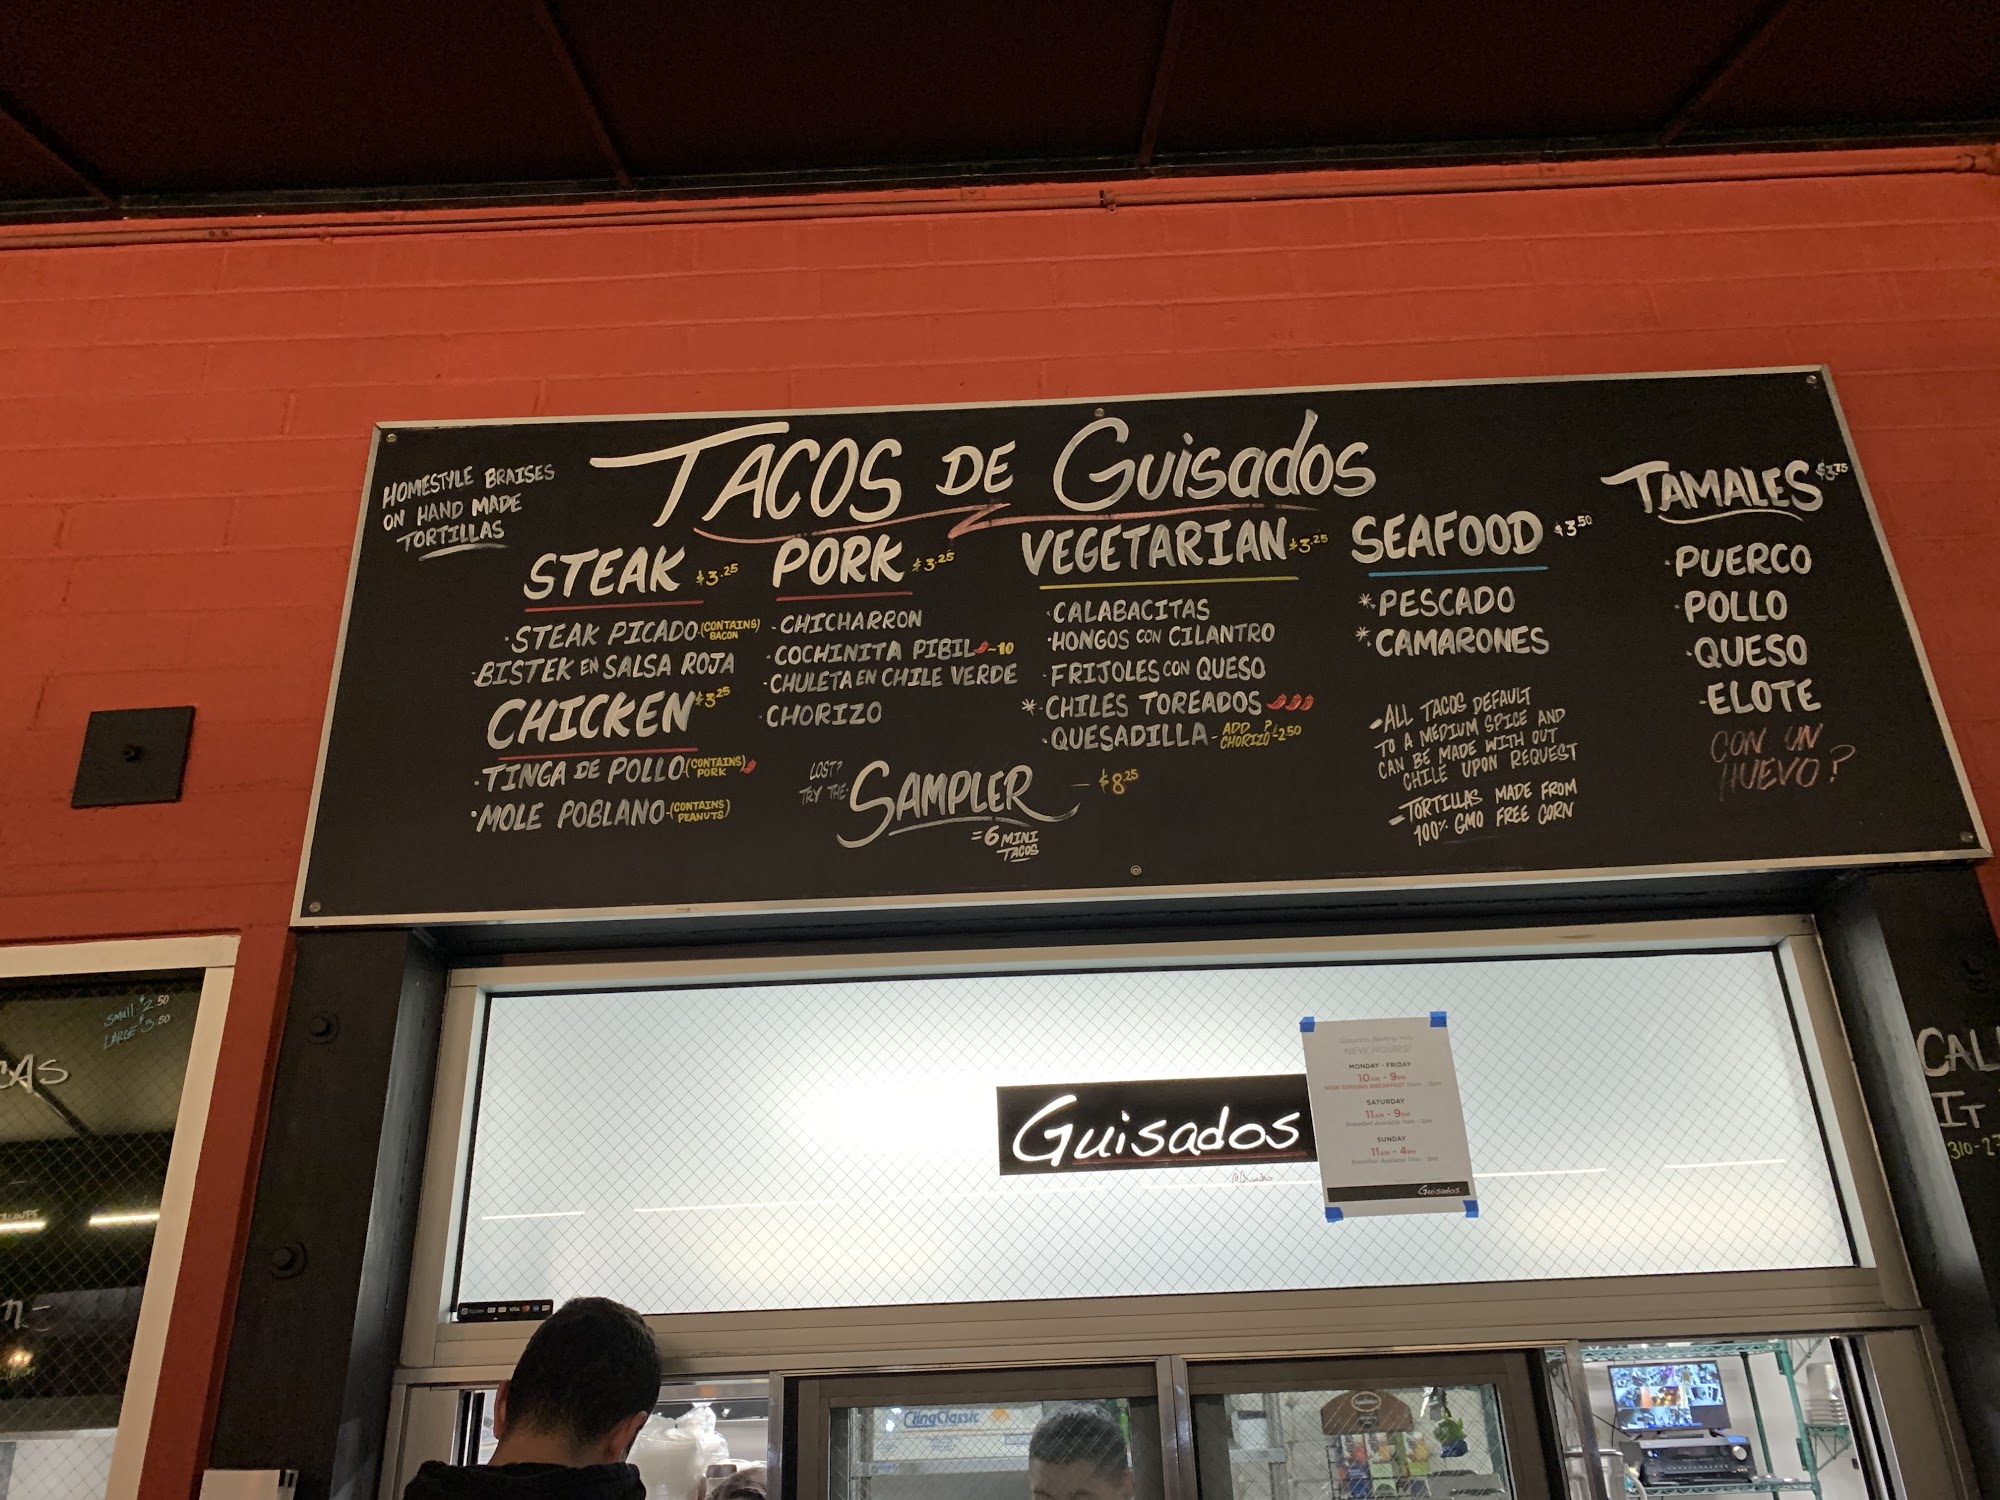 HOMESTYLE BRAISES
ON HAND MADE
TORTILLAS
TACOS DE Guisados
STEAK $3.25
· STEAK PICADO (CONTAINS BACON)
· BISTEK EN SALSA ROJA
CHICKEN $3.25
· TINGA DE POLLO (CONTAINS PORK)
· MOLE POBLANO - (CONTAINS PEANUTS)
PORK $3.25
· CHICHARRON
· COCHINITA PIBIL - 10
· CHULETA EN CHILE VERDE
· CHORIZO
LOST?
TRY THE
SAMPLER — $8.25
= 6 MINI
TACOS
VEGETARIAN $3.25
· CALABACITAS
· HONGOS CON CILANTRO
· FRIJOLES CON QUESO
* · CHILES TOREADOS
· QUESADILLA - ADD CHORIZO? $2.50
SEAFOOD $3.50
* PESCADO
* CAMARONES
- ALL TACOS DEFAULT
TO A MEDIUM SPICE AND
CAN BE MADE WITH OUT
CHILE UPON REQUEST
- TORTILLAS MADE FROM
100% GMO FREE CORN
TAMALES $3.75
· PUERCO
· POLLO
· QUESO
· ELOTE
CON UN
HUEVO?
small $2.50
LARGE $3.50
CAS
Guisados
Guisados Beverly Hills
NEW HOURS!
MONDAY - FRIDAY
10AM - 9PM
NOW SERVING BREAKFAST
SATURDAY
11AM - 9PM
Breakfast Available
SUNDAY
11AM - 4PM
Breakfast Available
Guisados
CAL
IT
310-27
VISA
ClingClassic